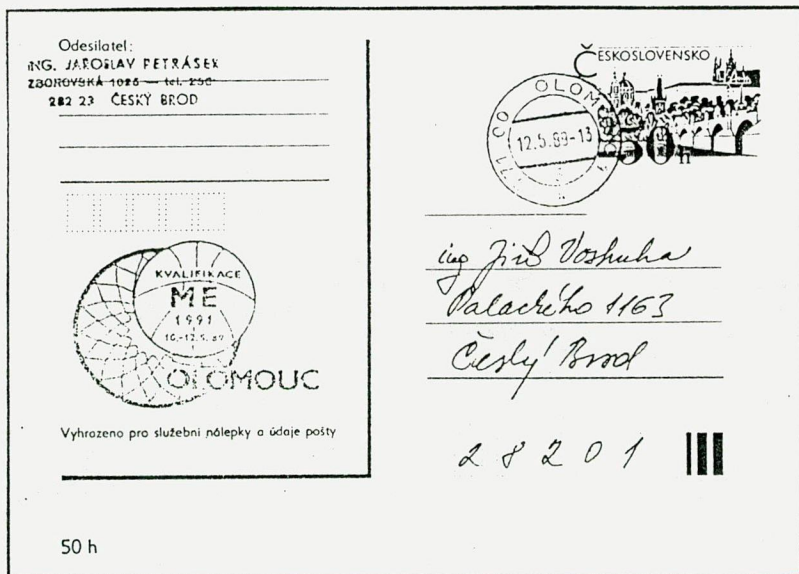 Odesilatel:
ING. JAROSLAV PETRÁSEK
ZBOROVSKÁ 1026 — tel. 250
282 23 ČESKÝ BROD
KVALIFIKACE
ME
1991
10.-12.5.89
OLOMOUC
Vyhrazeno pro služební nálepky a údaje pošty
50 h
ČESKOSLOVENSKO
50h
OLOMOUC 1
12.5.89-13
771 00
ing Jiří Voskuha
Palackého 1163
Český Brod
28201